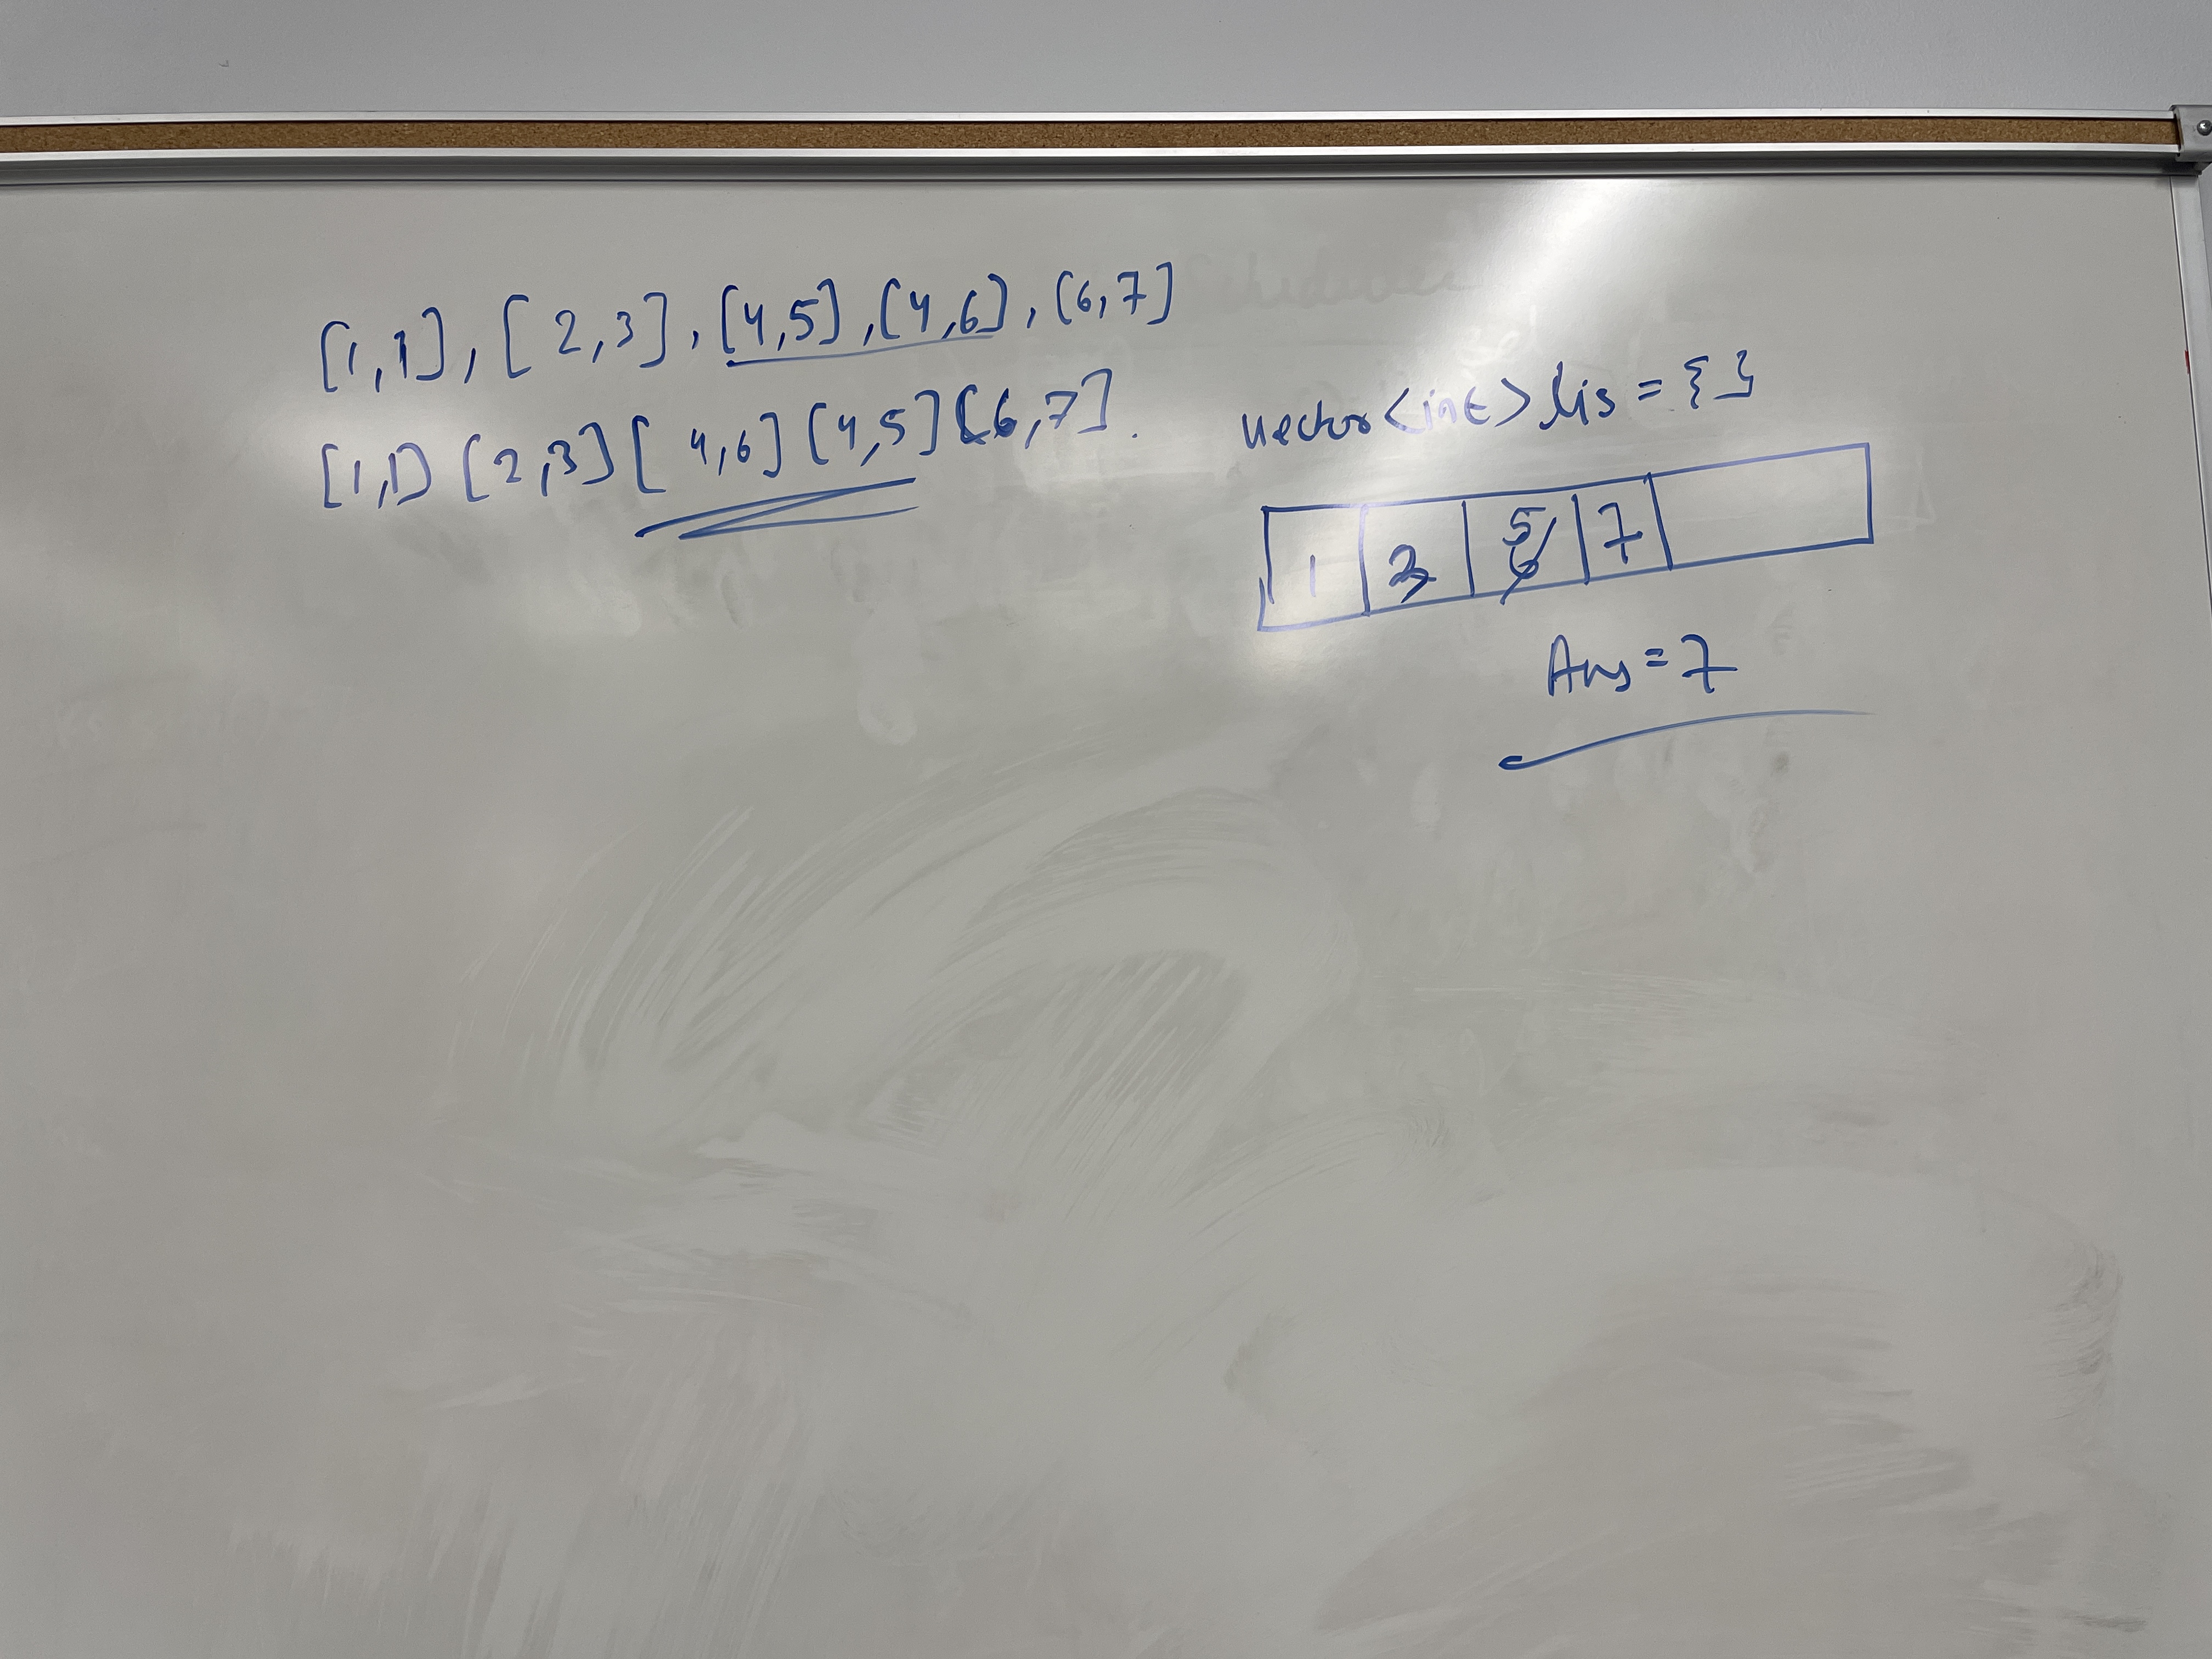 [1,1], [2,3], [4,5], [4,6], [6,7]
[1,1] [2,3] [4,6] [4,5] [6,7].
vector<int> lis = { }
1 3 5 6 7
Ans = 7